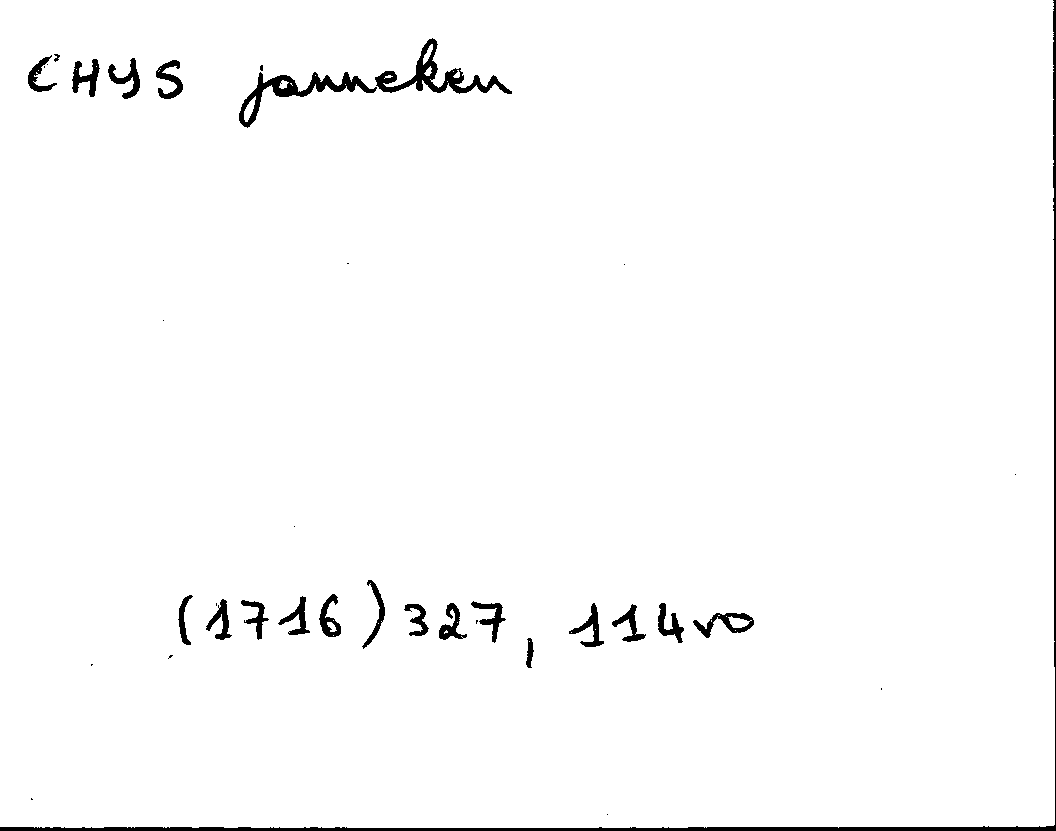 CHYS janneken
(1716) 327, 114vo